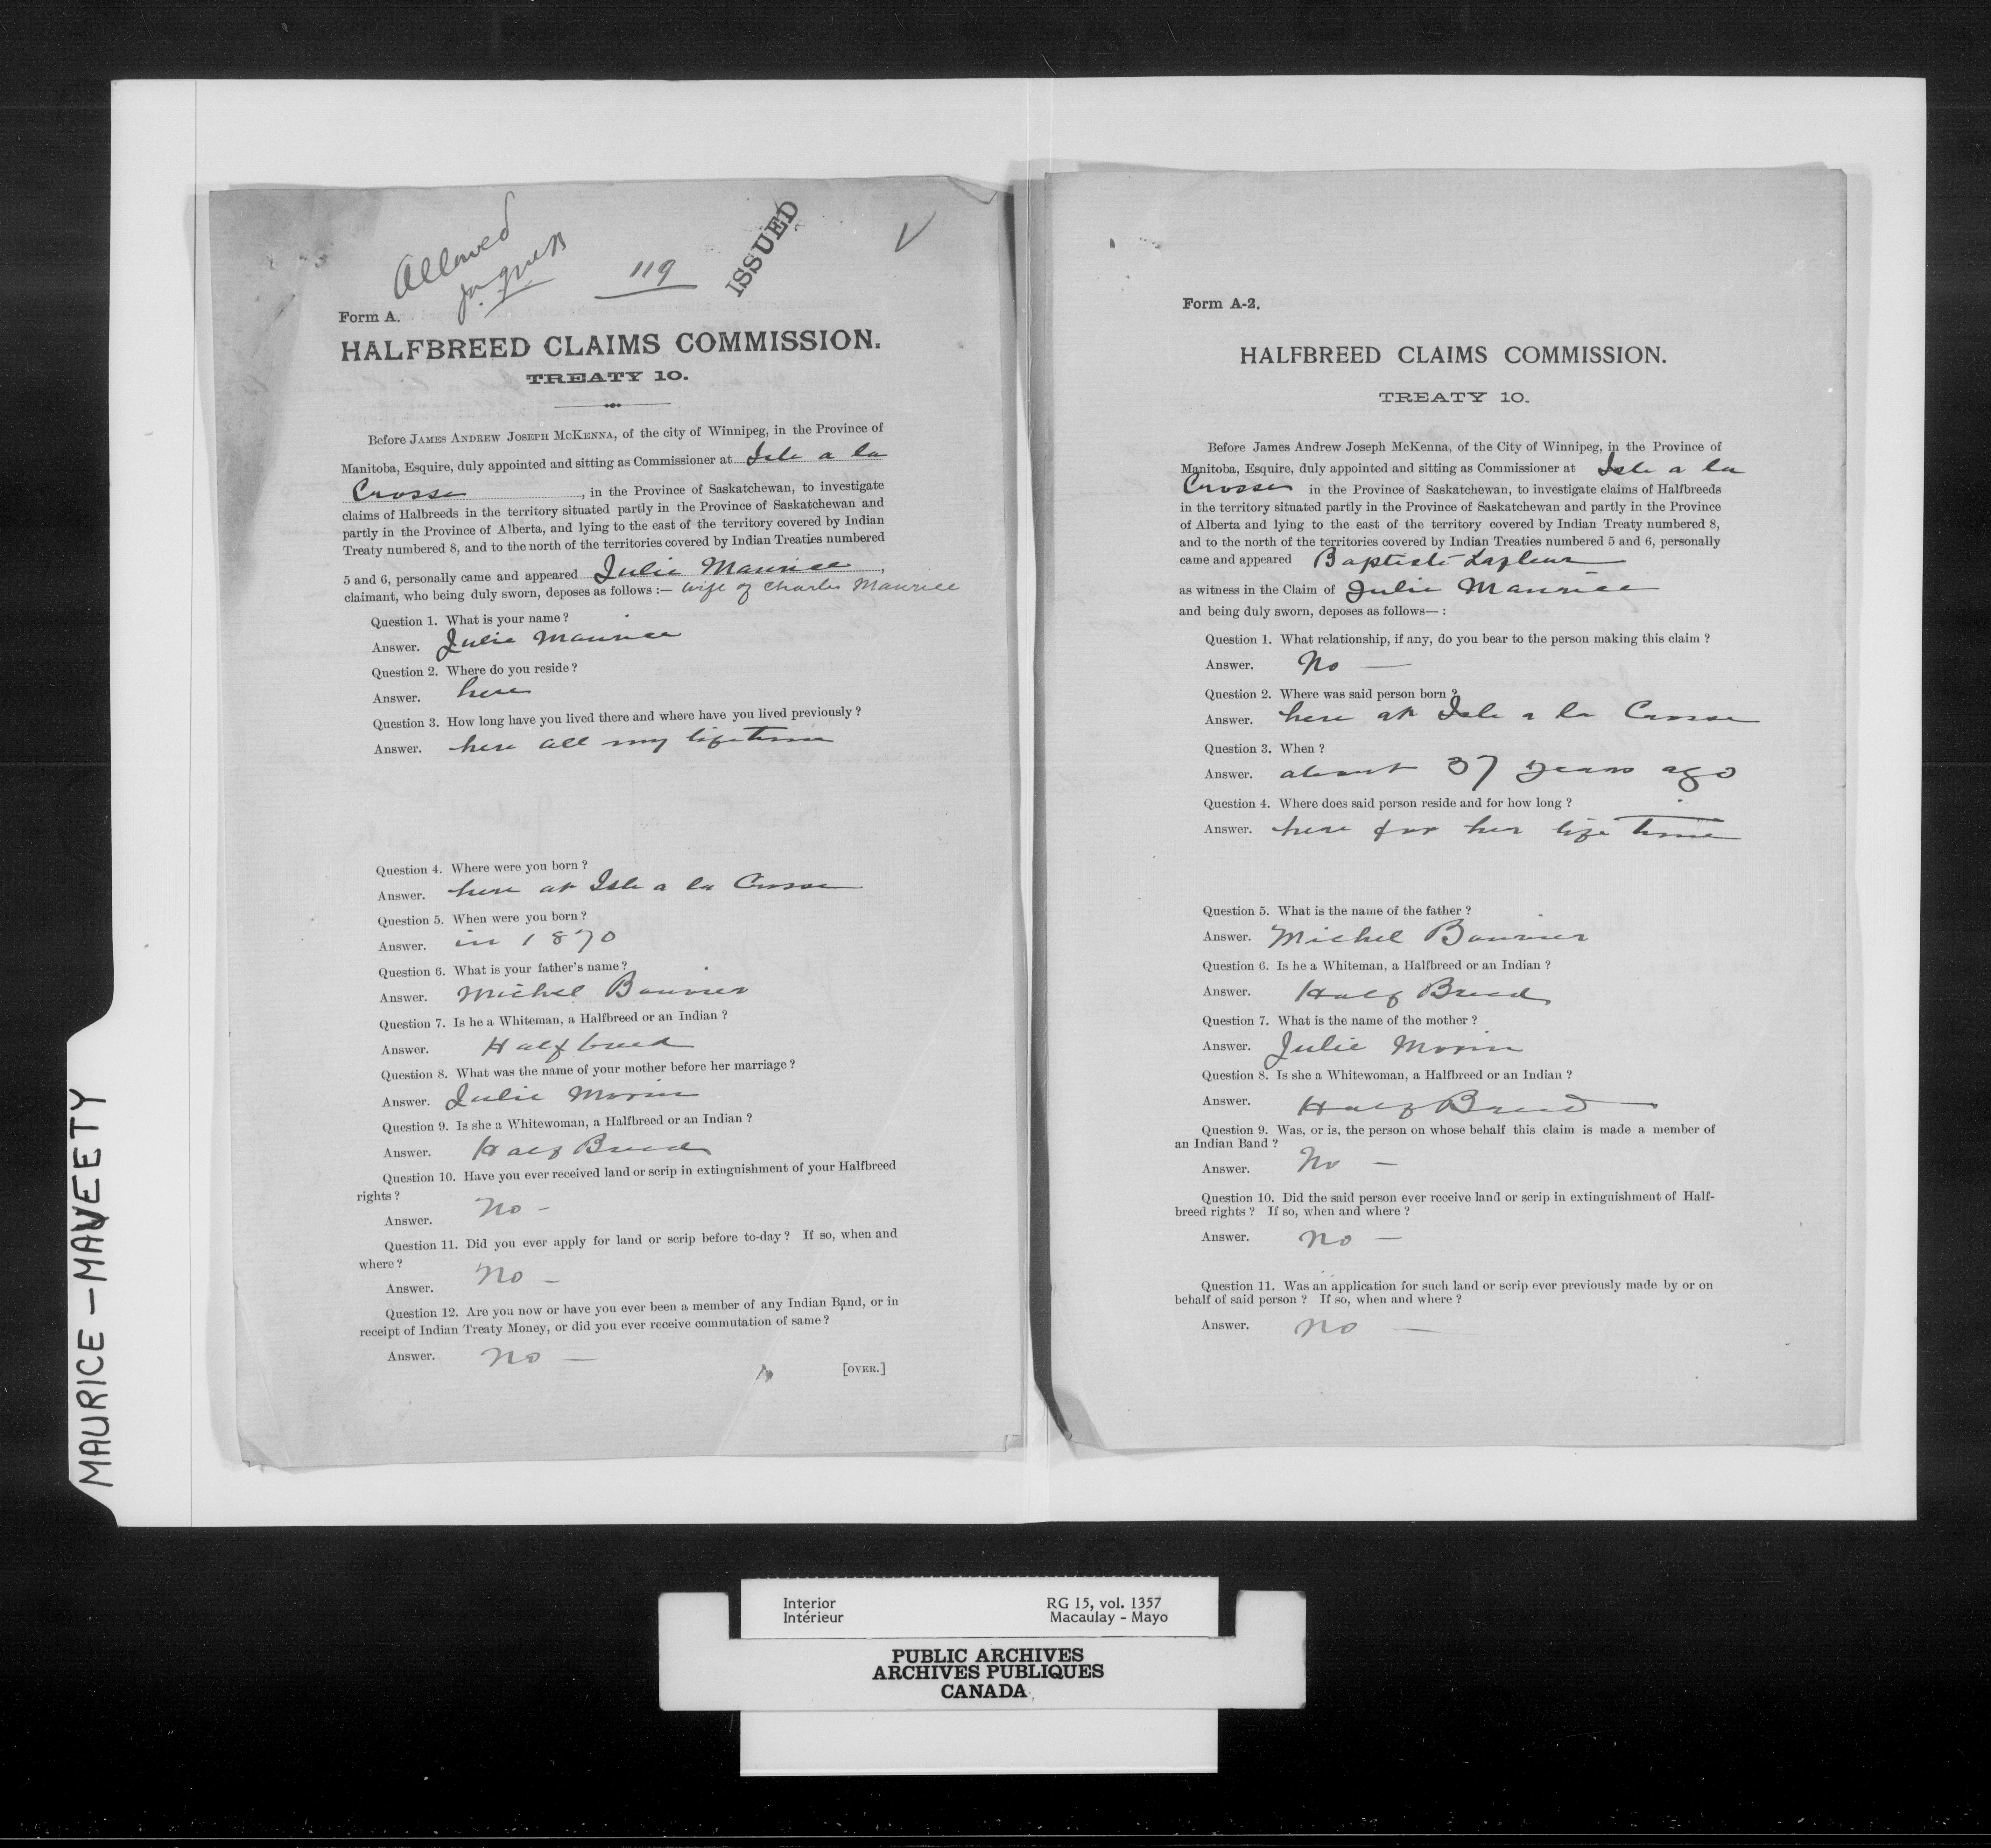 Allowed
119
ISSUED
Form A.
HALFBREED CLAIMS COMMISSION.
TREATY 10.
Before JAMES ANDREW JOSEPH MCKENNA, of the city of Winnipeg, in the Province of
Manitoba, Esquire, duly appointed and sitting as Commissioner at Isle a la
Crosse, in the Province of Saskatchewan, to investigate
claims of Halbreeds in the territory situated partly in the Province of Saskatchewan and
partly in the Province of Alberta, and lying to the east of the territory covered by Indian
Treaty numbered 8, and to the north of the territories covered by Indian Treaties numbered
5 and 6, personally came and appeared Julie Maurice,
claimant, who being duly sworn, deposes as follows :— wife of Charles Maurice
Question 1. What is your name?
Answer. Julie Maurice
Question 2. Where do you reside?
Answer. here
Question 3. How long have you lived there and where have you lived previously?
Answer. here all my lifetime
Question 4. Where were you born?
Answer. here at Isle a la Crosse
Question 5. When were you born?
Answer. in 1870
Question 6. What is your father's name?
Answer. Michel Bouvier
Question 7. Is he a Whiteman, a Halfbreed or an Indian?
Answer. Halfbreed
Question 8. What was the name of your mother before her marriage?
Answer. Julie Morin
Question 9. Is she a Whitewoman, a Halfbreed or an Indian?
Answer. Half Breed
Question 10. Have you ever received land or scrip in extinguishment of your Halfbreed
rights?
Answer. No -
Question 11. Did you ever apply for land or scrip before to-day? If so, when and
where?
Answer. No -
Question 12. Are you now or have you ever been a member of any Indian Band, or in
receipt of Indian Treaty Money, or did you ever receive commutation of same?
Answer. No —
[OVER.]
Form A-2.
HALFBREED CLAIMS COMMISSION.
TREATY 10.
Before James Andrew Joseph McKenna, of the City of Winnipeg, in the Province of
Manitoba, Esquire, duly appointed and sitting as Commissioner at Isle a la
Crosse in the Province of Saskatchewan, to investigate claims of Halfbreeds
in the territory situated partly in the Province of Saskatchewan and partly in the Province
of Alberta and lying to the east of the territory covered by Indian Treaty numbered 8,
and to the north of the territories covered by Indian Treaties numbered 5 and 6, personally
came and appeared Baptiste Lafleur
as witness in the Claim of Julie Maurice
and being duly sworn, deposes as follows— :
Question 1. What relationship, if any, do you bear to the person making this claim ?
Answer. No —
Question 2. Where was said person born ?
Answer. here at Isle a la Crosse
Question 3. When ?
Answer. about 37 years ago
Question 4. Where does said person reside and for how long ?
Answer. here for her life time
Question 5. What is the name of the father ?
Answer. Michel Bouvier
Question 6. Is he a Whiteman, a Halfbreed or an Indian ?
Answer. Half Breed
Question 7. What is the name of the mother ?
Answer. Julie Morin
Question 8. Is she a Whitewoman, a Halfbreed or an Indian ?
Answer. Half Breed —
Question 9. Was, or is, the person on whose behalf this claim is made a member of
an Indian Band ?
Answer. No —
Question 10. Did the said person ever receive land or scrip in extinguishment of Half-
breed rights ? If so, when and where ?
Answer. No —
Question 11. Was an application for such land or scrip ever previously made by or on
behalf of said person ? If so, when and where ?
Answer. No —
MAURICE – MAVEETY
Interior
Intérieur
RG 15, vol. 1357
Macaulay - Mayo
PUBLIC ARCHIVES
ARCHIVES PUBLIQUES
CANADA